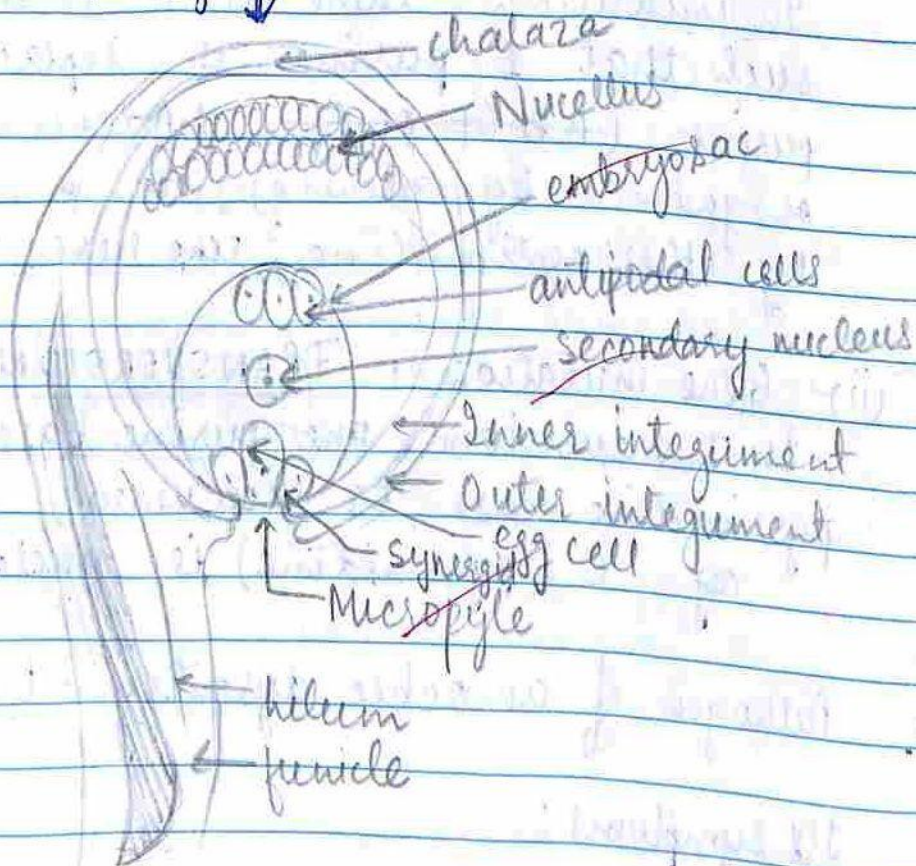 chalaza
Nucellus
embryosac
antipodal cells
secondary nucleus
Inner integument
Outer integument
egg cell
synergids
Micropyle
hilum
funicle